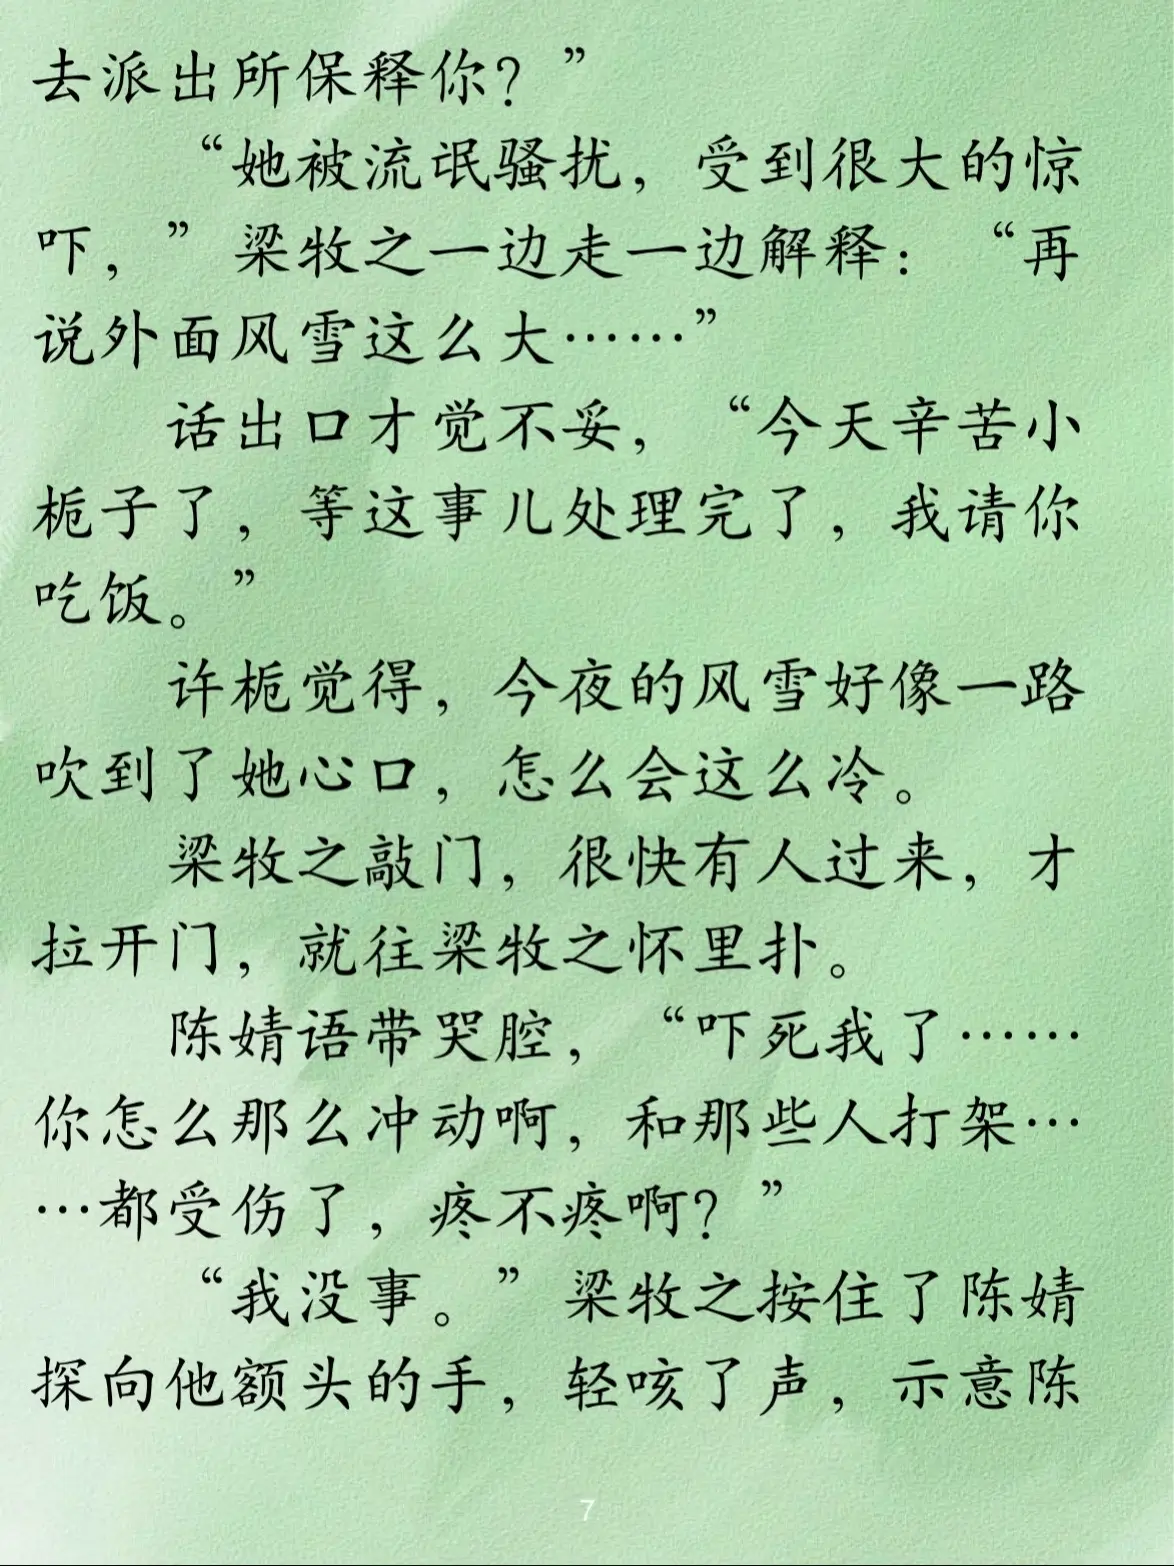 去派出所保释你？”
“她被流氓骚扰，受到很大的惊
吓，”梁牧之一边走一边解释：“再
说外面风雪这么大……”
话出口才觉不妥，“今天辛苦小
栀子了，等这事儿处理完了，我请你
吃饭。”
许栀觉得，今夜的风雪好像一路
吹到了她心口，怎么会这么冷。
梁牧之敲门，很快有人过来，才
拉开门，就往梁牧之怀里扑。
陈婧语带哭腔，“吓死我了……
你怎么那么冲动啊，和那些人打架…
…都受伤了，疼不疼啊？”
“我没事。”梁牧之按住了陈婧
探向他额头的手，轻咳了声，示意陈
7